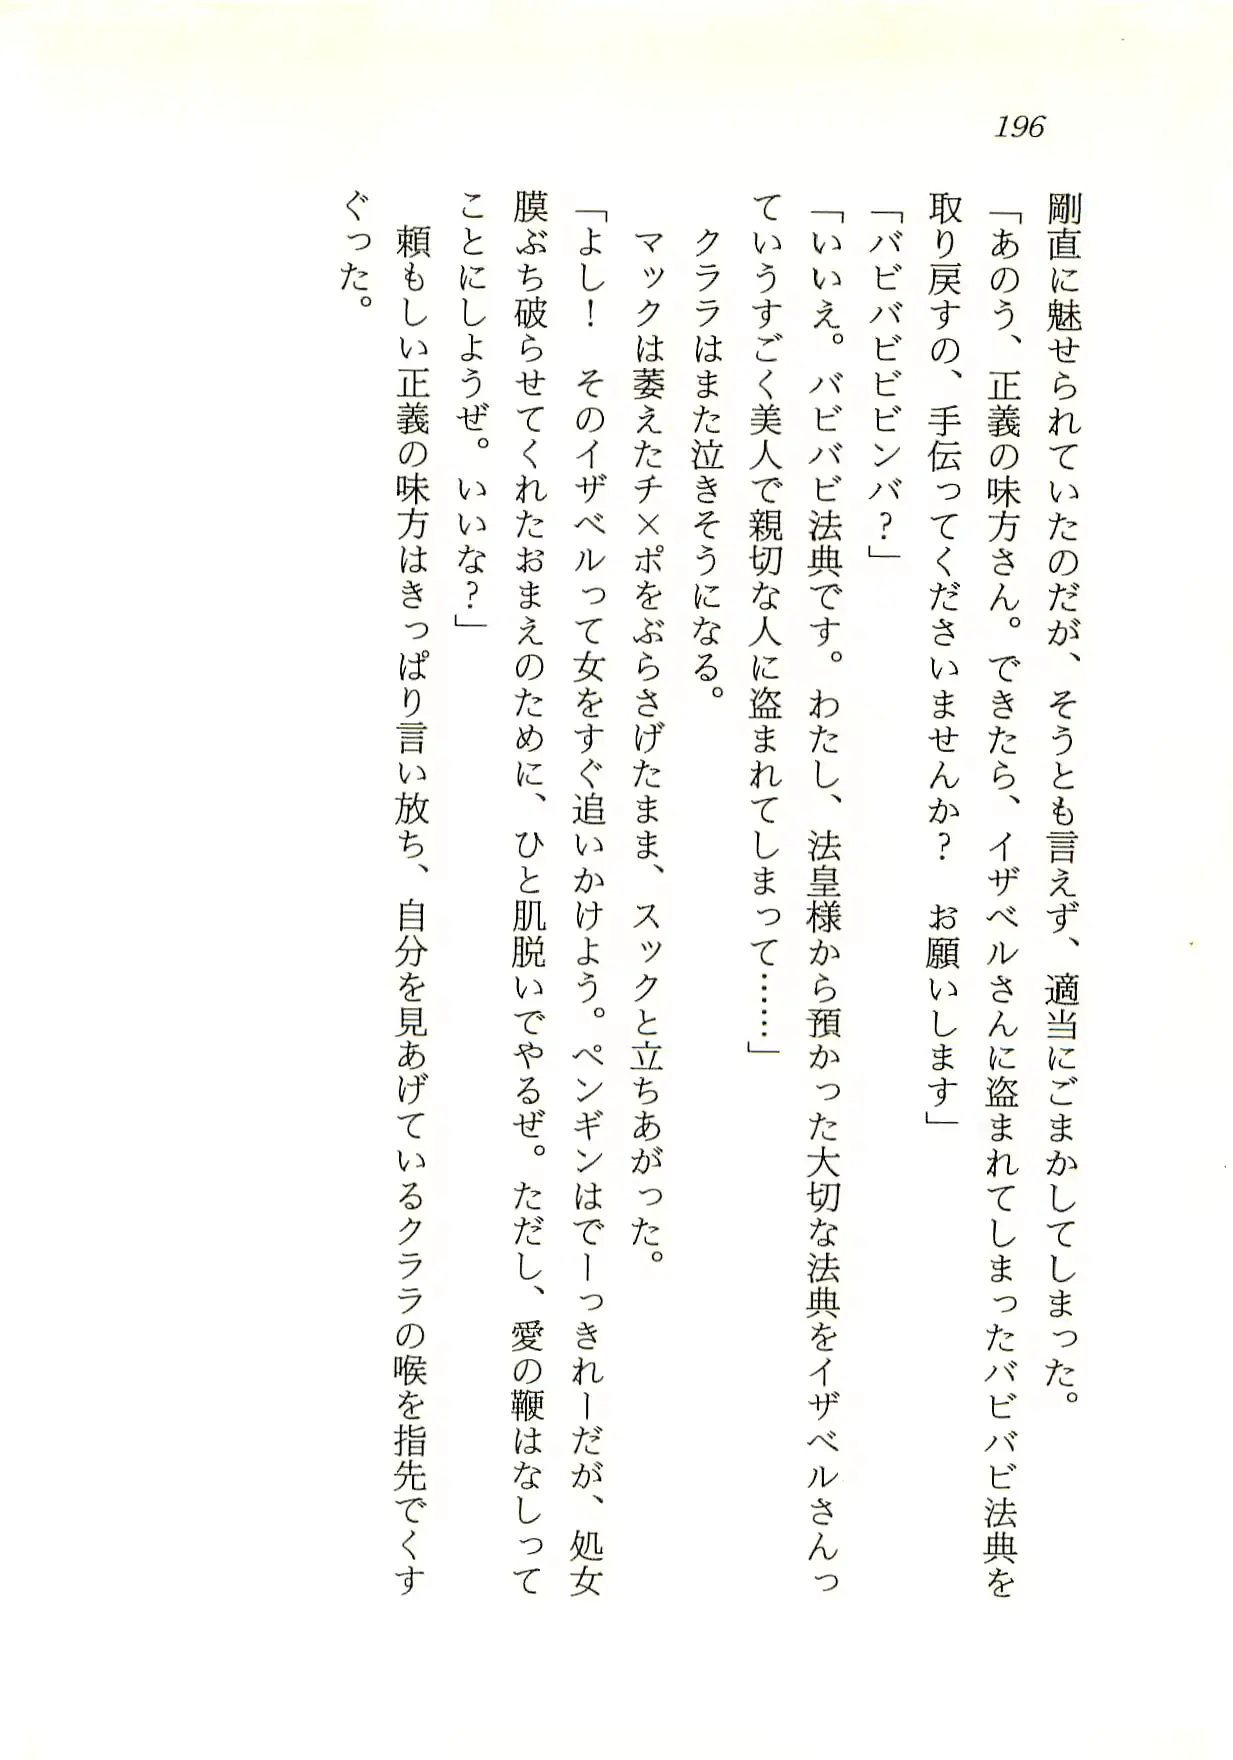 196
剛直に魅せられていたのだが、そうとも言えず、適当にごまかしてしまった。
「あのう、正義の味方さん。できたら、イザベルさんに盗まれてしまったバビバビ法典を
取り戻すの、手伝ってくださいませんか？　お願いします」
「バビバビビビンバ？」
「いいえ。バビバビ法典です。わたし、法皇様から預かった大切な法典をイザベルさんっ
ていうすごく美人で親切な人に盗まれてしまって……」
　クララはまた泣きそうになる。
　マックは萎えたチ×ポをぶらさげたまま、スックと立ちあがった。
「よし！　そのイザベルって女をすぐ追いかけよう。ペンギンはでーっきれーだが、処女
膜ぶち破らせてくれたおまえのために、ひと肌脱いでやるぜ。ただし、愛の鞭はなしって
ことにしようぜ。いいな？」
　頼もしい正義の味方はきっぱり言い放ち、自分を見あげているクララの喉を指先でくす
ぐった。